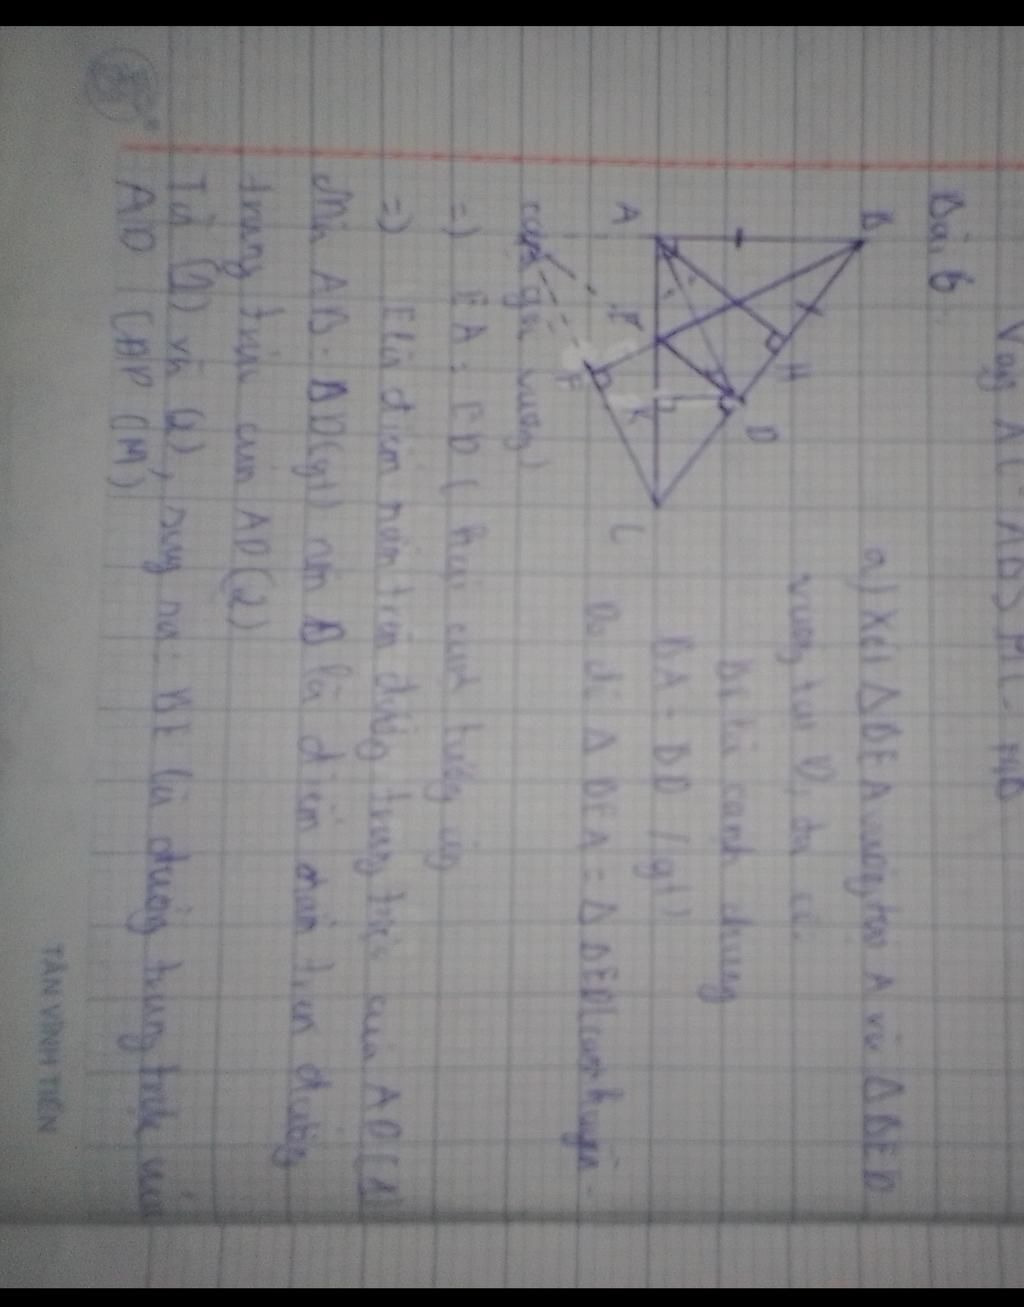 Vậy AC - AB > MC - MB
Bài 6:
B
H
D
A
E
K
C
F
a) Xét Δ BEA vuông tại A và Δ BED
vuông tại D, ta có:
BE là cạnh chung
BA = BD (gt)
Do đó Δ BEA = Δ BED (cạnh huyền -
cạnh góc vuông)
=) EA = ED ( hai cạnh tương ứng
=) E là điểm nằm trên đường trung trực của AD (1)
Mà AB = BD (gt) nên B là điểm nằm trên đường
trung trực của AD (2)
Từ (1) và (2), suy ra: BE là đường trung trực của
AD (ĐPCM)
TÂN VĨNH TIẾN